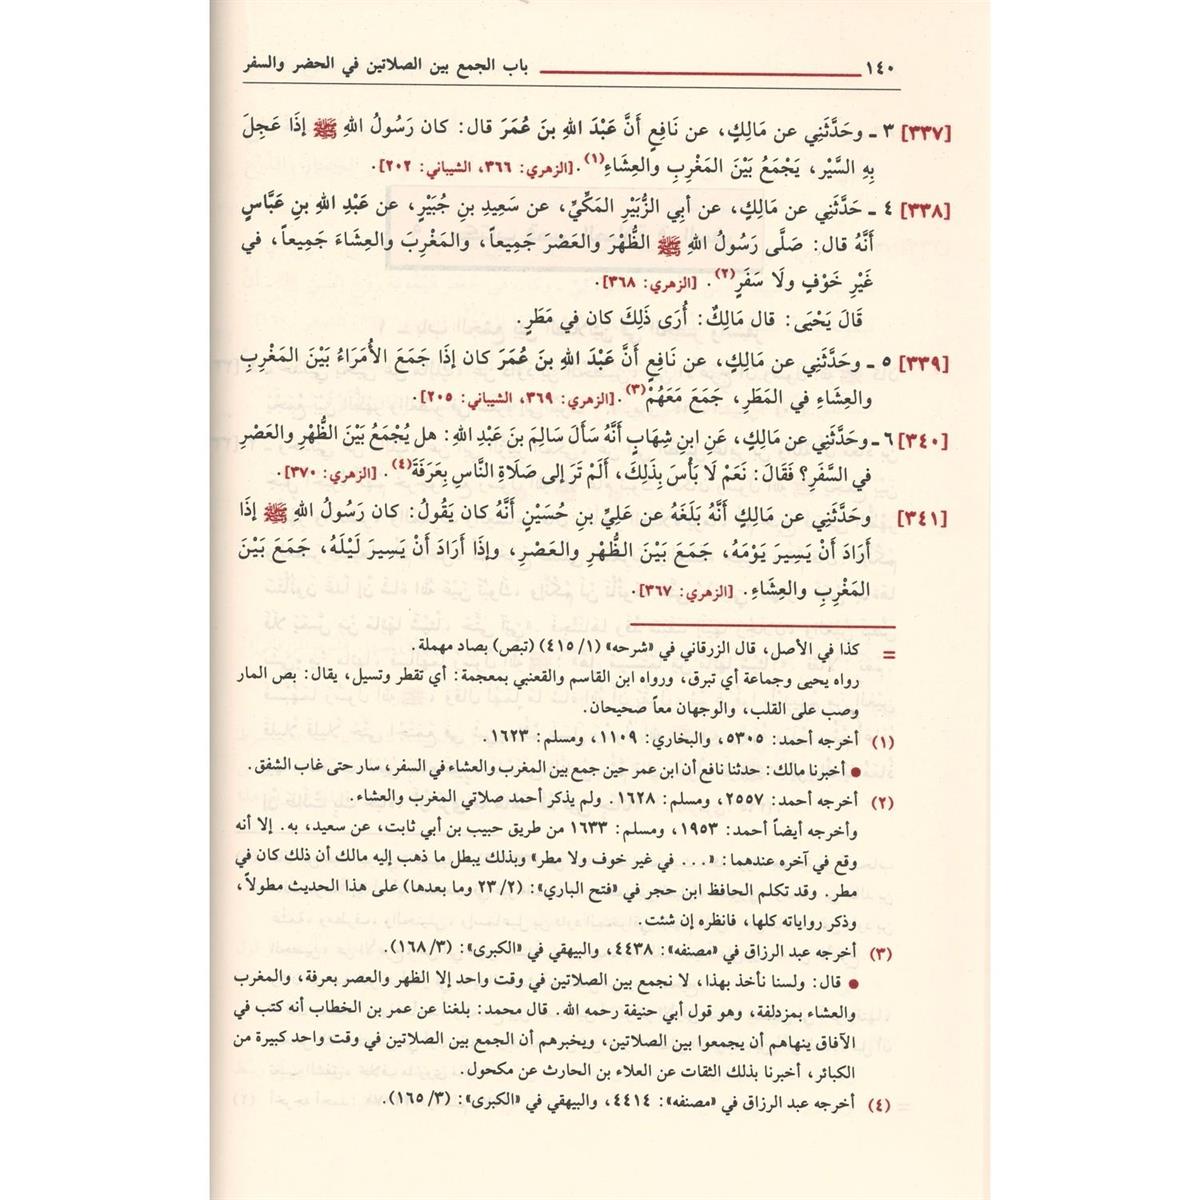 ١٤٠ باب الجمع بين الصلاتين في الحضر والسفر
[٣٣٧] ٣ ـ وحَدَّثَنِي عن مَالِكٍ، عن نَافِعٍ أَنَّ عَبْدَ اللهِ بنَ عُمَرَ قال: كان رَسُولُ اللهِ ﷺ إذَا عَجِلَ
بِهِ السَّيْر، يَجْمَعُ بَيْنَ المَغْرِبِ والعِشَاءِ(١). [الزهري: ٣٦٦، الشيباني: ٢٠٢].
[٣٣٨] ٤ ـ حَدَّثَنِي عن مَالِكٍ، عن أبي الزُّبَيْرِ المَكِّيِّ، عن سَعِيدِ بنِ جُبَيْرٍ، عن عَبْدِ اللهِ بنِ عَبَّاسٍ
أَنَّهُ قال: صَلَّى رَسُولُ اللهِ ﷺ الظُّهْرَ والعَصْرَ جَمِيعاً، والمَغْرِبَ والعِشَاءَ جَمِيعاً، في
غَيْرِ خَوْفٍ ولَا سَفَرٍ(٢). [الزهري: ٣٦٨].
قَالَ يَحْيَى: قال مَالِكٌ: أُرَى ذَلِكَ كان في مَطَرٍ.
[٣٣٩] ٥ ـ وحَدَّثَنِي عن مَالِكٍ، عن نَافِعٍ أَنَّ عَبْدَ اللهِ بنَ عُمَرَ كان إذَا جَمَعَ الأُمَرَاءُ بَيْنَ المَغْرِبِ
والعِشَاءِ في المَطَرِ، جَمَعَ مَعَهُمْ(٣). [الزهري: ٣٦٩، الشيباني: ٢٠٥].
[٣٤٠] ٦ ـ وحَدَّثَنِي عن مَالِكٍ، عَنِ ابنِ شِهَابٍ أَنَّهُ سَأَلَ سَالِمَ بنَ عَبْدِ اللهِ: هل يُجْمَعُ بَيْنَ الظُّهْرِ والعَصْرِ
في السَّفَرِ؟ فَقَالَ: نَعَمْ لَا بَأْسَ بِذَلِكَ، أَلَمْ تَرَ إلى صَلَاةِ النَّاسِ بِعَرَفَةَ(٤). [الزهري: ٣٧٠].
[٣٤١] وحَدَّثَنِي عن مَالِكٍ أَنَّهُ بَلَغَهُ عن عَلِيِّ بنِ حُسَيْنٍ أَنَّهُ كان يَقُولُ: كان رَسُولُ اللهِ ﷺ إذَا
أَرَادَ أَنْ يَسِيرَ يَوْمَهُ، جَمَعَ بَيْنَ الظُّهْرِ والعَصْرِ، وإذَا أَرَادَ أَنْ يَسِيرَ لَيْلَهُ، جَمَعَ بَيْنَ
المَغْرِبِ والعِشَاءِ. [الزهري: ٣٦٧].
= كذا في الأصل، قال الزرقاني في «شرحه» (١/ ٤١٥) (تبص) بصاد مهملة.
رواه يحيى وجماعة أي تبرق، ورواه ابن القاسم والقعنبي بمعجمة: أي تقطر وتسيل، يقال: بض المار
وصب على القلب، والوجهان معاً صحيحان.
(١) أخرجه أحمد: ٥٣٠٥، والبخاري: ١١٠٩، ومسلم: ١٦٢٣.
● أخبرنا مالك: حدثنا نافع أن ابن عمر حين جمع بين المغرب والعشاء في السفر، سار حتى غاب الشفق.
(٢) أخرجه أحمد: ٢٥٥٧، ومسلم: ١٦٢٨. ولم يذكر أحمد صلاتي المغرب والعشاء.
وأخرجه أيضاً أحمد: ١٩٥٣، ومسلم: ١٦٣٣ من طريق حبيب بن أبي ثابت، عن سعيد، به. إلا أنه
وقع في آخره عندهما: «... في غير خوف ولا مطر» وبذلك يبطل ما ذهب إليه مالك أن ذلك كان في
مطر. وقد تكلم الحافظ ابن حجر في «فتح الباري»: (٢/ ٢٣ وما بعدها) على هذا الحديث مطولاً،
وذكر رواياته كلها، فانظره إن شئت.
(٣) أخرجه عبد الرزاق في «مصنفه»: ٤٤٣٨، والبيهقي في «الكبرى»: (٣/ ١٦٨).
● قال: ولسنا نأخذ بهذا، لا نجمع بين الصلاتين في وقت واحد إلا الظهر والعصر بعرفة، والمغرب
والعشاء بمزدلفة، وهو قول أبي حنيفة رحمه الله. قال محمد: بلغنا عن عمر بن الخطاب أنه كتب في
الآفاق ينهاهم أن يجمعوا بين الصلاتين، ويخبرهم أن الجمع بين الصلاتين في وقت واحد كبيرة من
الكبائر، أخبرنا بذلك الثقات عن العلاء بن الحارث عن مكحول.
(٤) أخرجه عبد الرزاق في «مصنفه»: ٤٤١٤، والبيهقي في «الكبرى»: (٣/ ١٦٥).